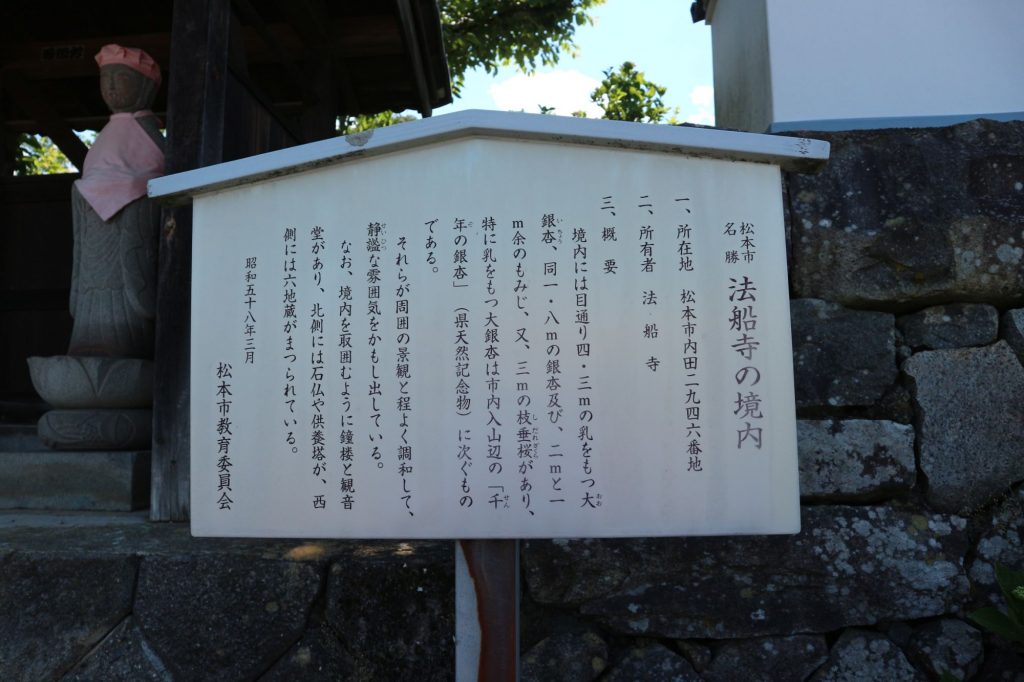 松本市
名勝
法船寺の境内
一、所在地　松本市内田二九四六番地
二、所有者　法船寺
三、概要
境内には目通り四・三mの乳をもつ大
銀杏、同一・八mの銀杏及び、二mと一
m余のもみじ、又、三mの枝垂桜があり、
特に乳をもつ大銀杏は市内入山辺の「千
年の銀杏」（県天然記念物）に次ぐもの
である。
それらが周囲の景観と程よく調和して、
静謐な雰囲気をかもし出している。
なお、境内を取囲むように鐘楼と観音
堂があり、北側には石仏や供養塔が、西
側には六地蔵がまつられている。
昭和五十八年三月
松本市教育委員会